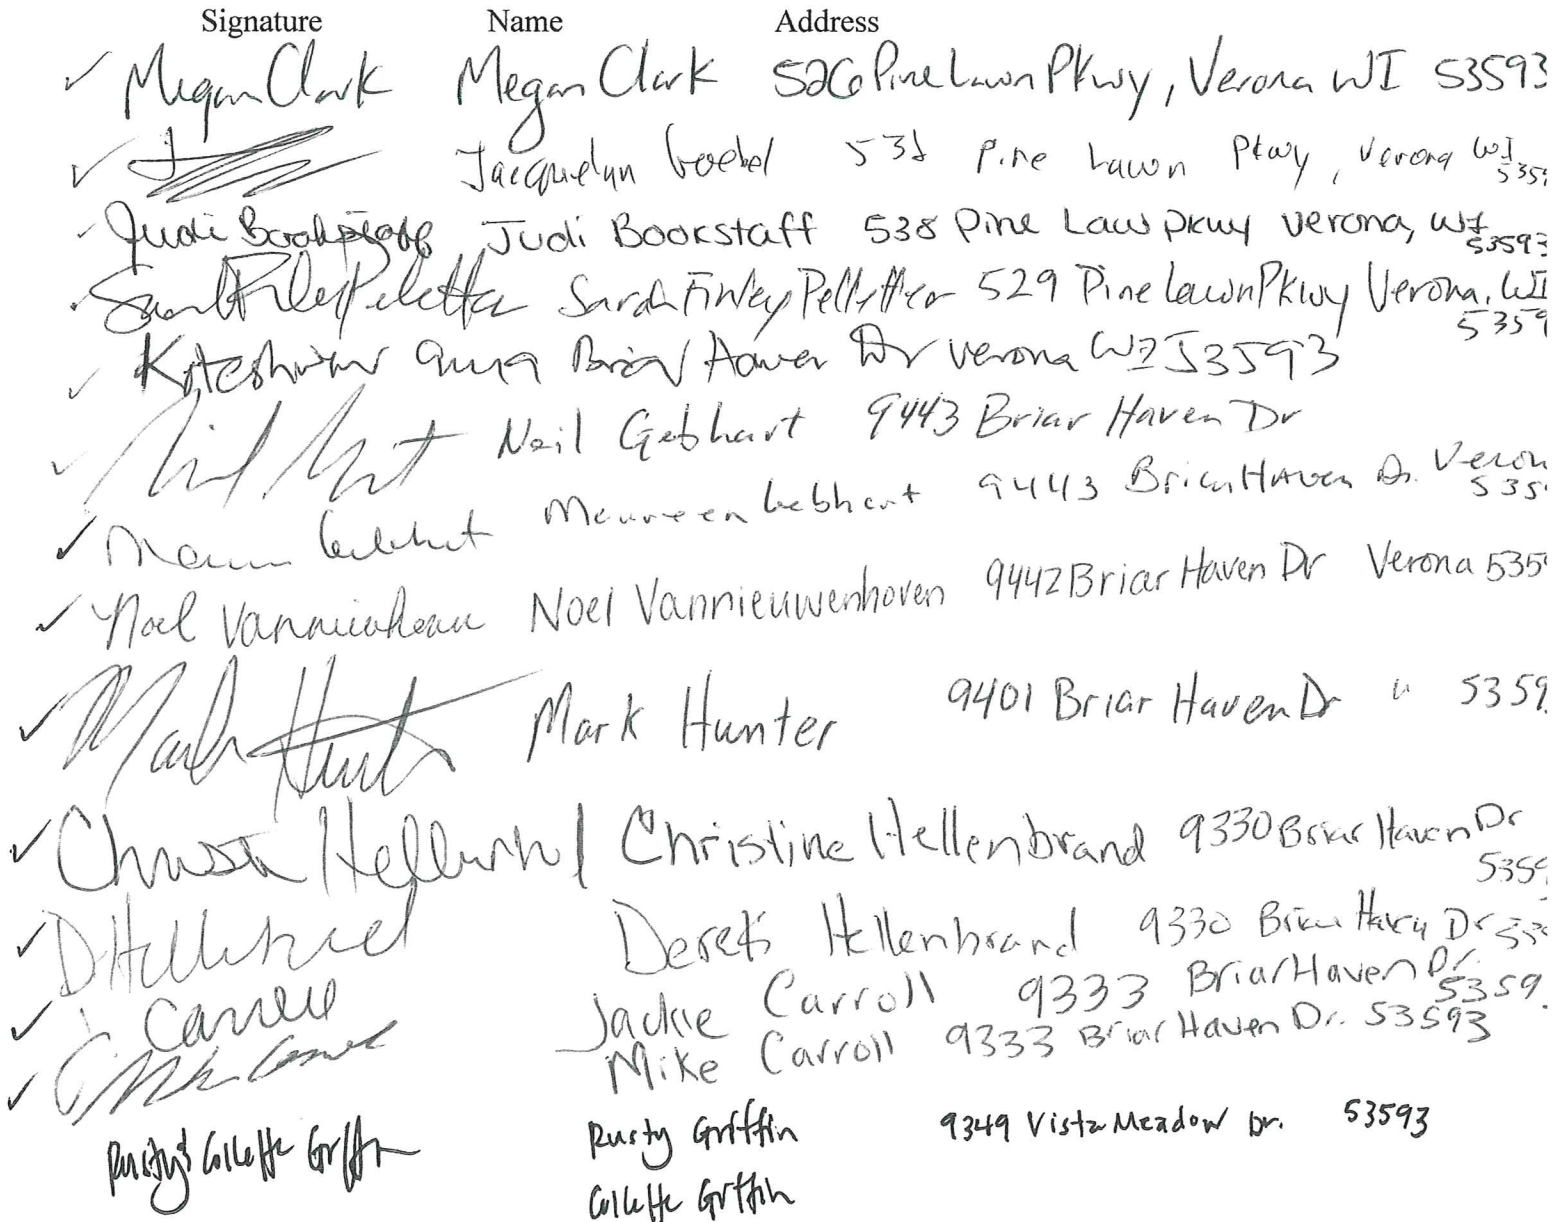 Signature Name Address
Megan Clark Megan Clark 526 Pine Lawn Pkwy, Verona WI 53593
Jacquelyn Goebel 53 Pine Lawn Pkwy, Verona WI 5359
Judi Bookstaff Judi Bookstaff 538 Pine Law pkwy Verona, WI 53593
Sarah Finley Pelletter 529 Pine Lawn Pkwy Verona, WI 5359
Briar Haven Dr Verona WI 53593
Neil Gebhart 9443 Briar Haven Dr
Maureen Gebhart Maureen Gebhart 9443 Briar Haven Dr. Veron 535
Noel Vannieuwenhoven 9442 Briar Haven Dr Verona 535
Mark Hunter Mark Hunter 9401 Briar Haven Dr " 5359
Christine Hellenbrand 9330 Briar Haven Dr 5359
D Hellenbrand Derek Hellenbrand 9330 Briar Haven Dr 535
J Carroll Jackie Carroll 9333 Briar Haven Dr. 5359
Mike Carroll Mike Carroll 9333 Briar Haven Dr. 53593
Rusty & Collette Griffin Rusty Griffin 9349 Vista Meadow Dr. 53593
Collette Griffin